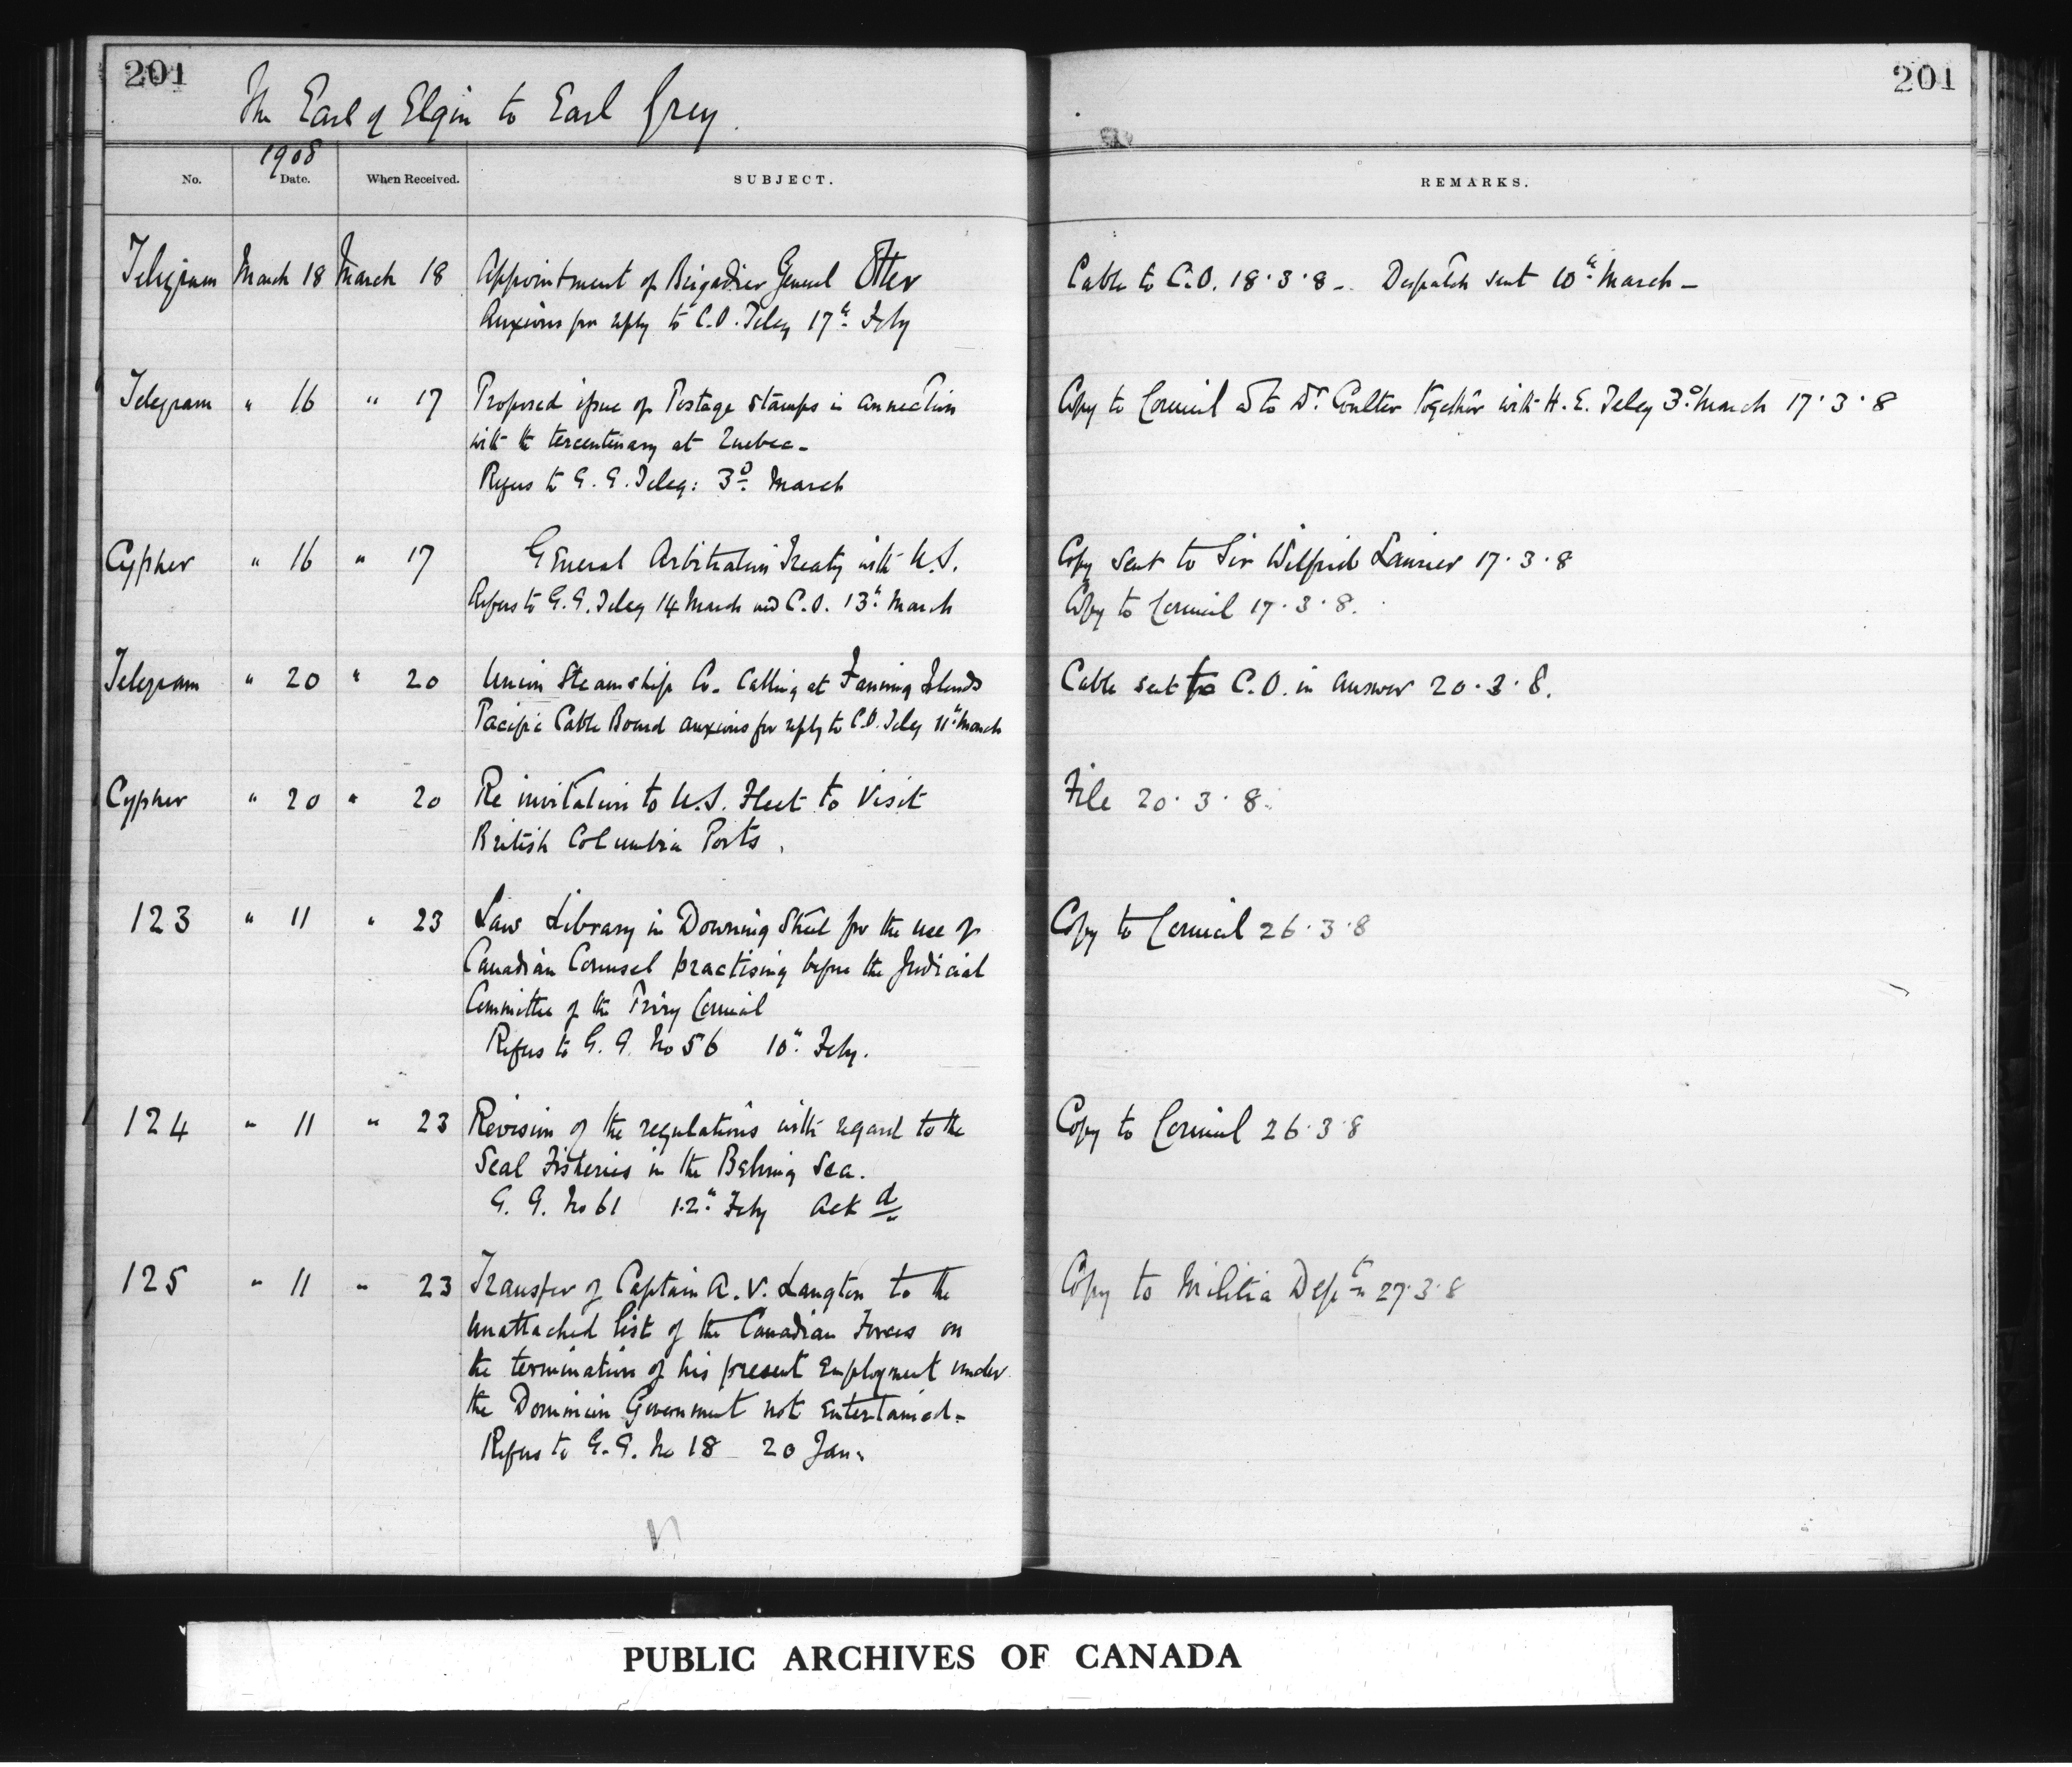 201
201
The Earl of Elgin to Earl Grey.
1908
No. Date. When Received. SUBJECT. REMARKS.
Telegram March 18 March 18 Appointment of Brigadier General Otter Cable to C.O. 18.3.8 - Despatch sent 10th March -
Anxious for reply to C.O. Teleg 17th Feby
Telegram " 16 " 17 Proposed issue of Postage Stamps in connection Copy to Council & to Dr. Coulter together with H.E. Teleg 3d March 17.3.8
with the tercentenary at Quebec -
Refers to G.G. Teleg: 3d March
Cypher " 16 " 17 General Arbitration Treaty with U.S. Copy sent to Sir Wilfrid Laurier 17.3.8
Refers to G.G. Teleg 14 March and C.O. 13th March Copy to Council 17.3.8.
Telegram " 20 " 20 Union Steamship Co. calling at Fanning Islands Cable sent to C.O. in answer 20.3.8.
Pacific Cable Board anxious for reply to C.O. Teleg 11th March
Cypher " 20 " 20 Re invitation to U.S. Fleet to visit File 20.3.8.
British Columbia Ports.
123 " 11 " 23 Law Library in Downing Street for the use of Copy to Council 26.3.8
Canadian Counsel practising before the Judicial
Committee of the Privy Council
Refers to G.G. No 56 10th Feby.
124 " 11 " 23 Revision of the regulations with regard to the Copy to Council 26.3.8
Seal Fisheries in the Behring Sea.
G.G. No 61 12th Feby Ackd
125 " 11 " 23 Transfer of Captain A.V. Langton to the Copy to Militia Dept 27.3.8
unattached list of the Canadian Forces on
the termination of his present employment under
the Dominion Government not entertained -
Refers to G.G. No 18 20 Jan.
PUBLIC ARCHIVES OF CANADA